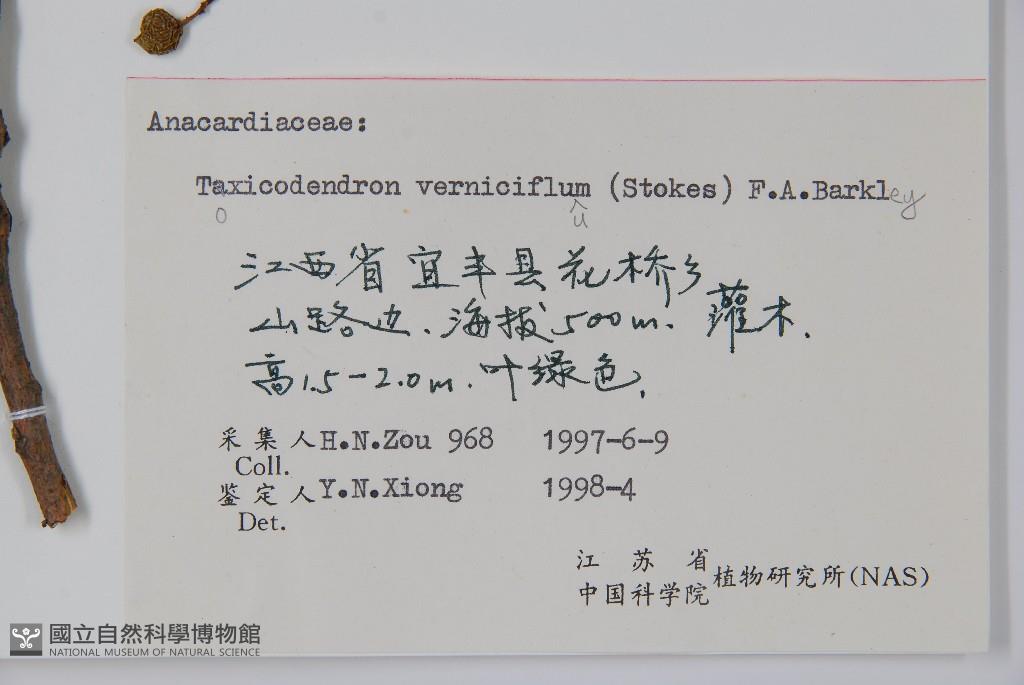 Anacardiaceae:
Taxicodendron verniciflum (Stokes) F.A.Barkley
o ^u
江西省宜丰县花桥乡
山路边、海拔500m. 灌木.
高1.5-2.0m.叶绿色.
采集人 H.N.Zou 968 1997-6-9
Coll.
鉴定人 Y.N.Xiong 1998-4
Det.
江苏省
中国科学院 植物研究所(NAS)
國立自然科學博物館
NATIONAL MUSEUM OF NATURAL SCIENCE